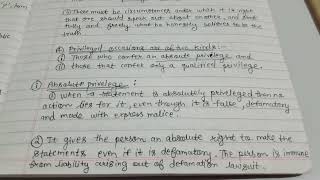 ③ There must be circumstances under which it is right
that one should speak out about another, and that
fully and freely what he honestly believes to be the
truth.
④ Privileged occasions are of two kinds:-
① Those who confer an absolute privilege and
② those that confer only a qualified privilege.
① Absolute privilege :
① when a statement is absolutely privileged then no
action lies for it, even though it is false, defamatory
and made with express malice.
② It gives the person an absolute right to make the
statements even if it is defamatory. The person is immune
from liability arising out of defamation lawsuit.